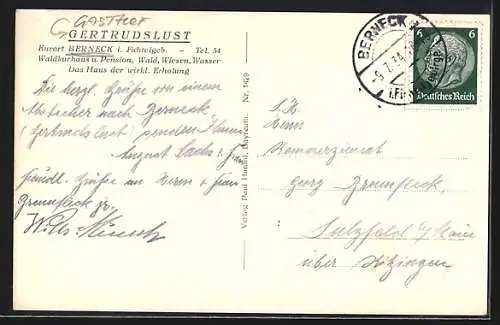 GASTHOF
GERTRUDSLUST
Kurort BERNECK i. Fichtelgeb. – Tel. 54
Waldkurhaus u. Pension, Wald, Wiesen, Wasser
Das Haus der wirkl. Erholung
Die herzl. Grüße von einem
Abstecher nach Berneck
(Gertrudslust) senden Ihnen
August Sachs & Frau
freundl. Grüße an Herrn & Frau
Willy
Verlag Paul Bayreuth. Nr. 1629
BERNECK
9.7.34
i.Fi
6 6
Deutsches Reich
S.H.
Herrn
Kommerzienrat
Georg Zrenefleck
Sulzfeld a/Main
über Kitzingen